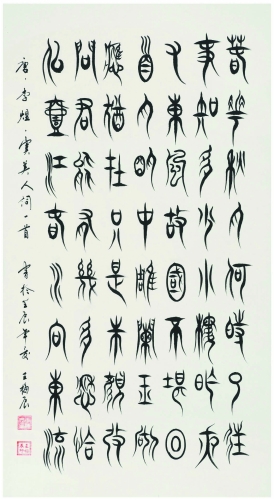 春華秋月何時了往
事知多少小樓昨夜
又東風故國不堪回
首月明中雕闌玉砌
應猶在只是朱顏改
問君能有幾多愁恰
似壹江春水向東流
唐·李煜·虞美人詞一首 書於壬辰年